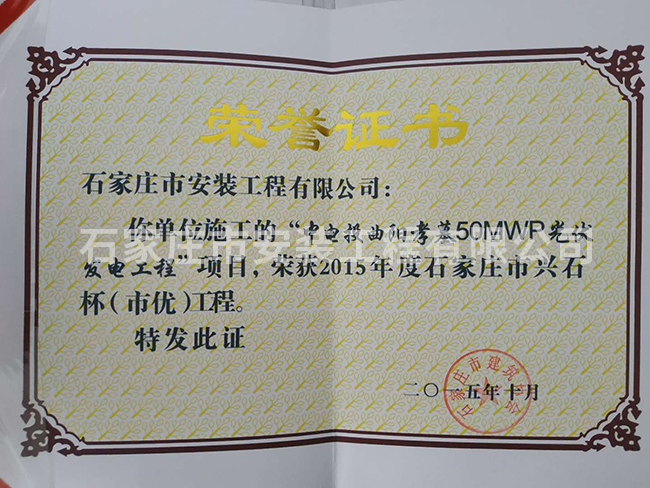 荣誉证书
石家庄市安装工程有限公司：
你单位施工的“中电投曲阳·孝墓50MWP光伏
发电工程”项目，荣获2015年度石家庄市兴石
杯（市优）工程。
特发此证
石家庄市安装工程有限公司
石家庄市建筑协会
二〇一五年十月